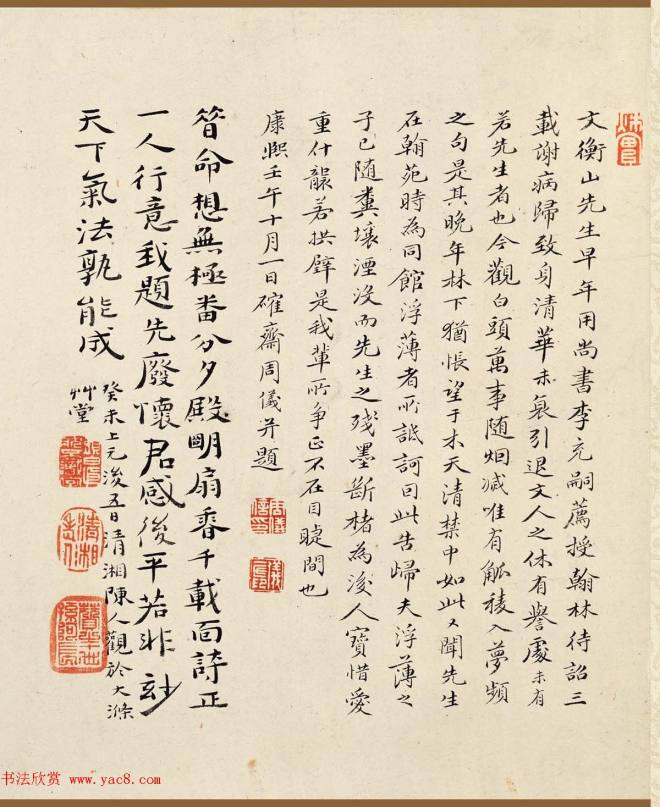 文衡山先生早年用尚書李充嗣薦授翰林待詔三
載謝病歸致身清華未衰引退文人之休有譽處未有
若先生者也今觀白頭萬事随烟滅唯有觚稜入夢頻
之句是其晚年林下猶悵望于木天清禁中如此又聞先生
在翰苑時為同館浮薄者所詆訶曰此告歸夫浮薄之
子已随糞壤湮没而先生之殘墨斷楮為後人寶惜愛
重什襲若拱璧是我輩所爭正不在目睫間也
康熙壬午十月一日確齋周儀并題
命想無極番分夕殿明扇香千載面詩正
一人行意我題先廢懷君感後平若非
天下氣法孰能成
癸未上元後五日清湘陳人觀於大滌
艸堂
书法欣赏 www.yac8.com